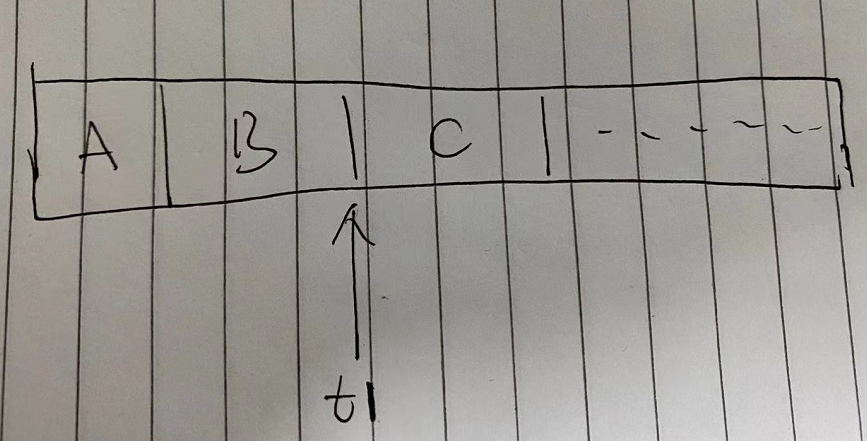 A | B | C | - - - - -
t1